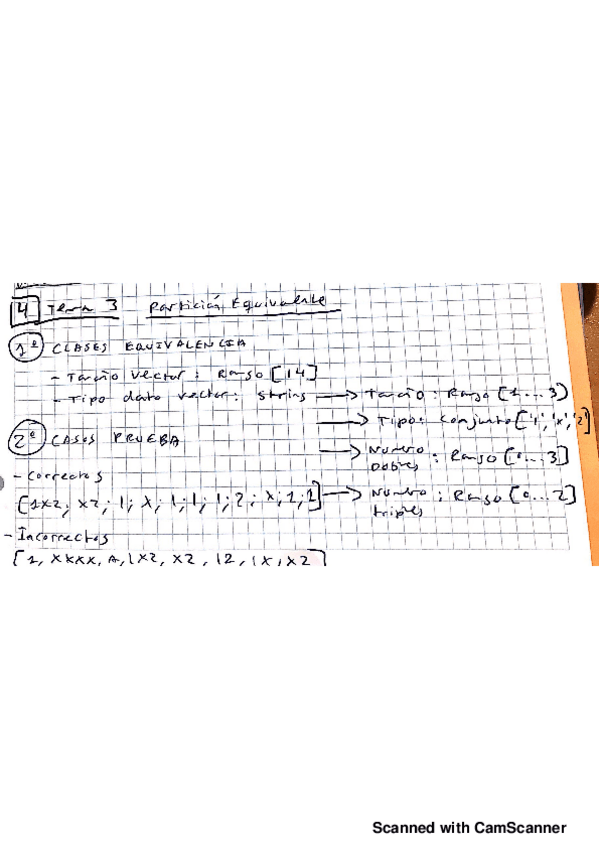 4 Tema 3 Partición Equivalente
1º CLASES EQUIVALENCIA
- Tamaño vector: Rango [14]
- Tipo dato vector: string → Tamaño: Rango (1...3)
→ Tipo: Conjunto ['1','x','2']
→ Numero Dobles: Rango [0...3]
→ Número triples: Rango [0...2]
2º CASOS PRUEBA
- Correctos
[1x2; x2; 1; x; 1; 1; 1; 2; x; 1; 1]
- Incorrectos
[1, xxxx, A, 1x2, x2, 12, 1x, x2]
Scanned with CamScanner